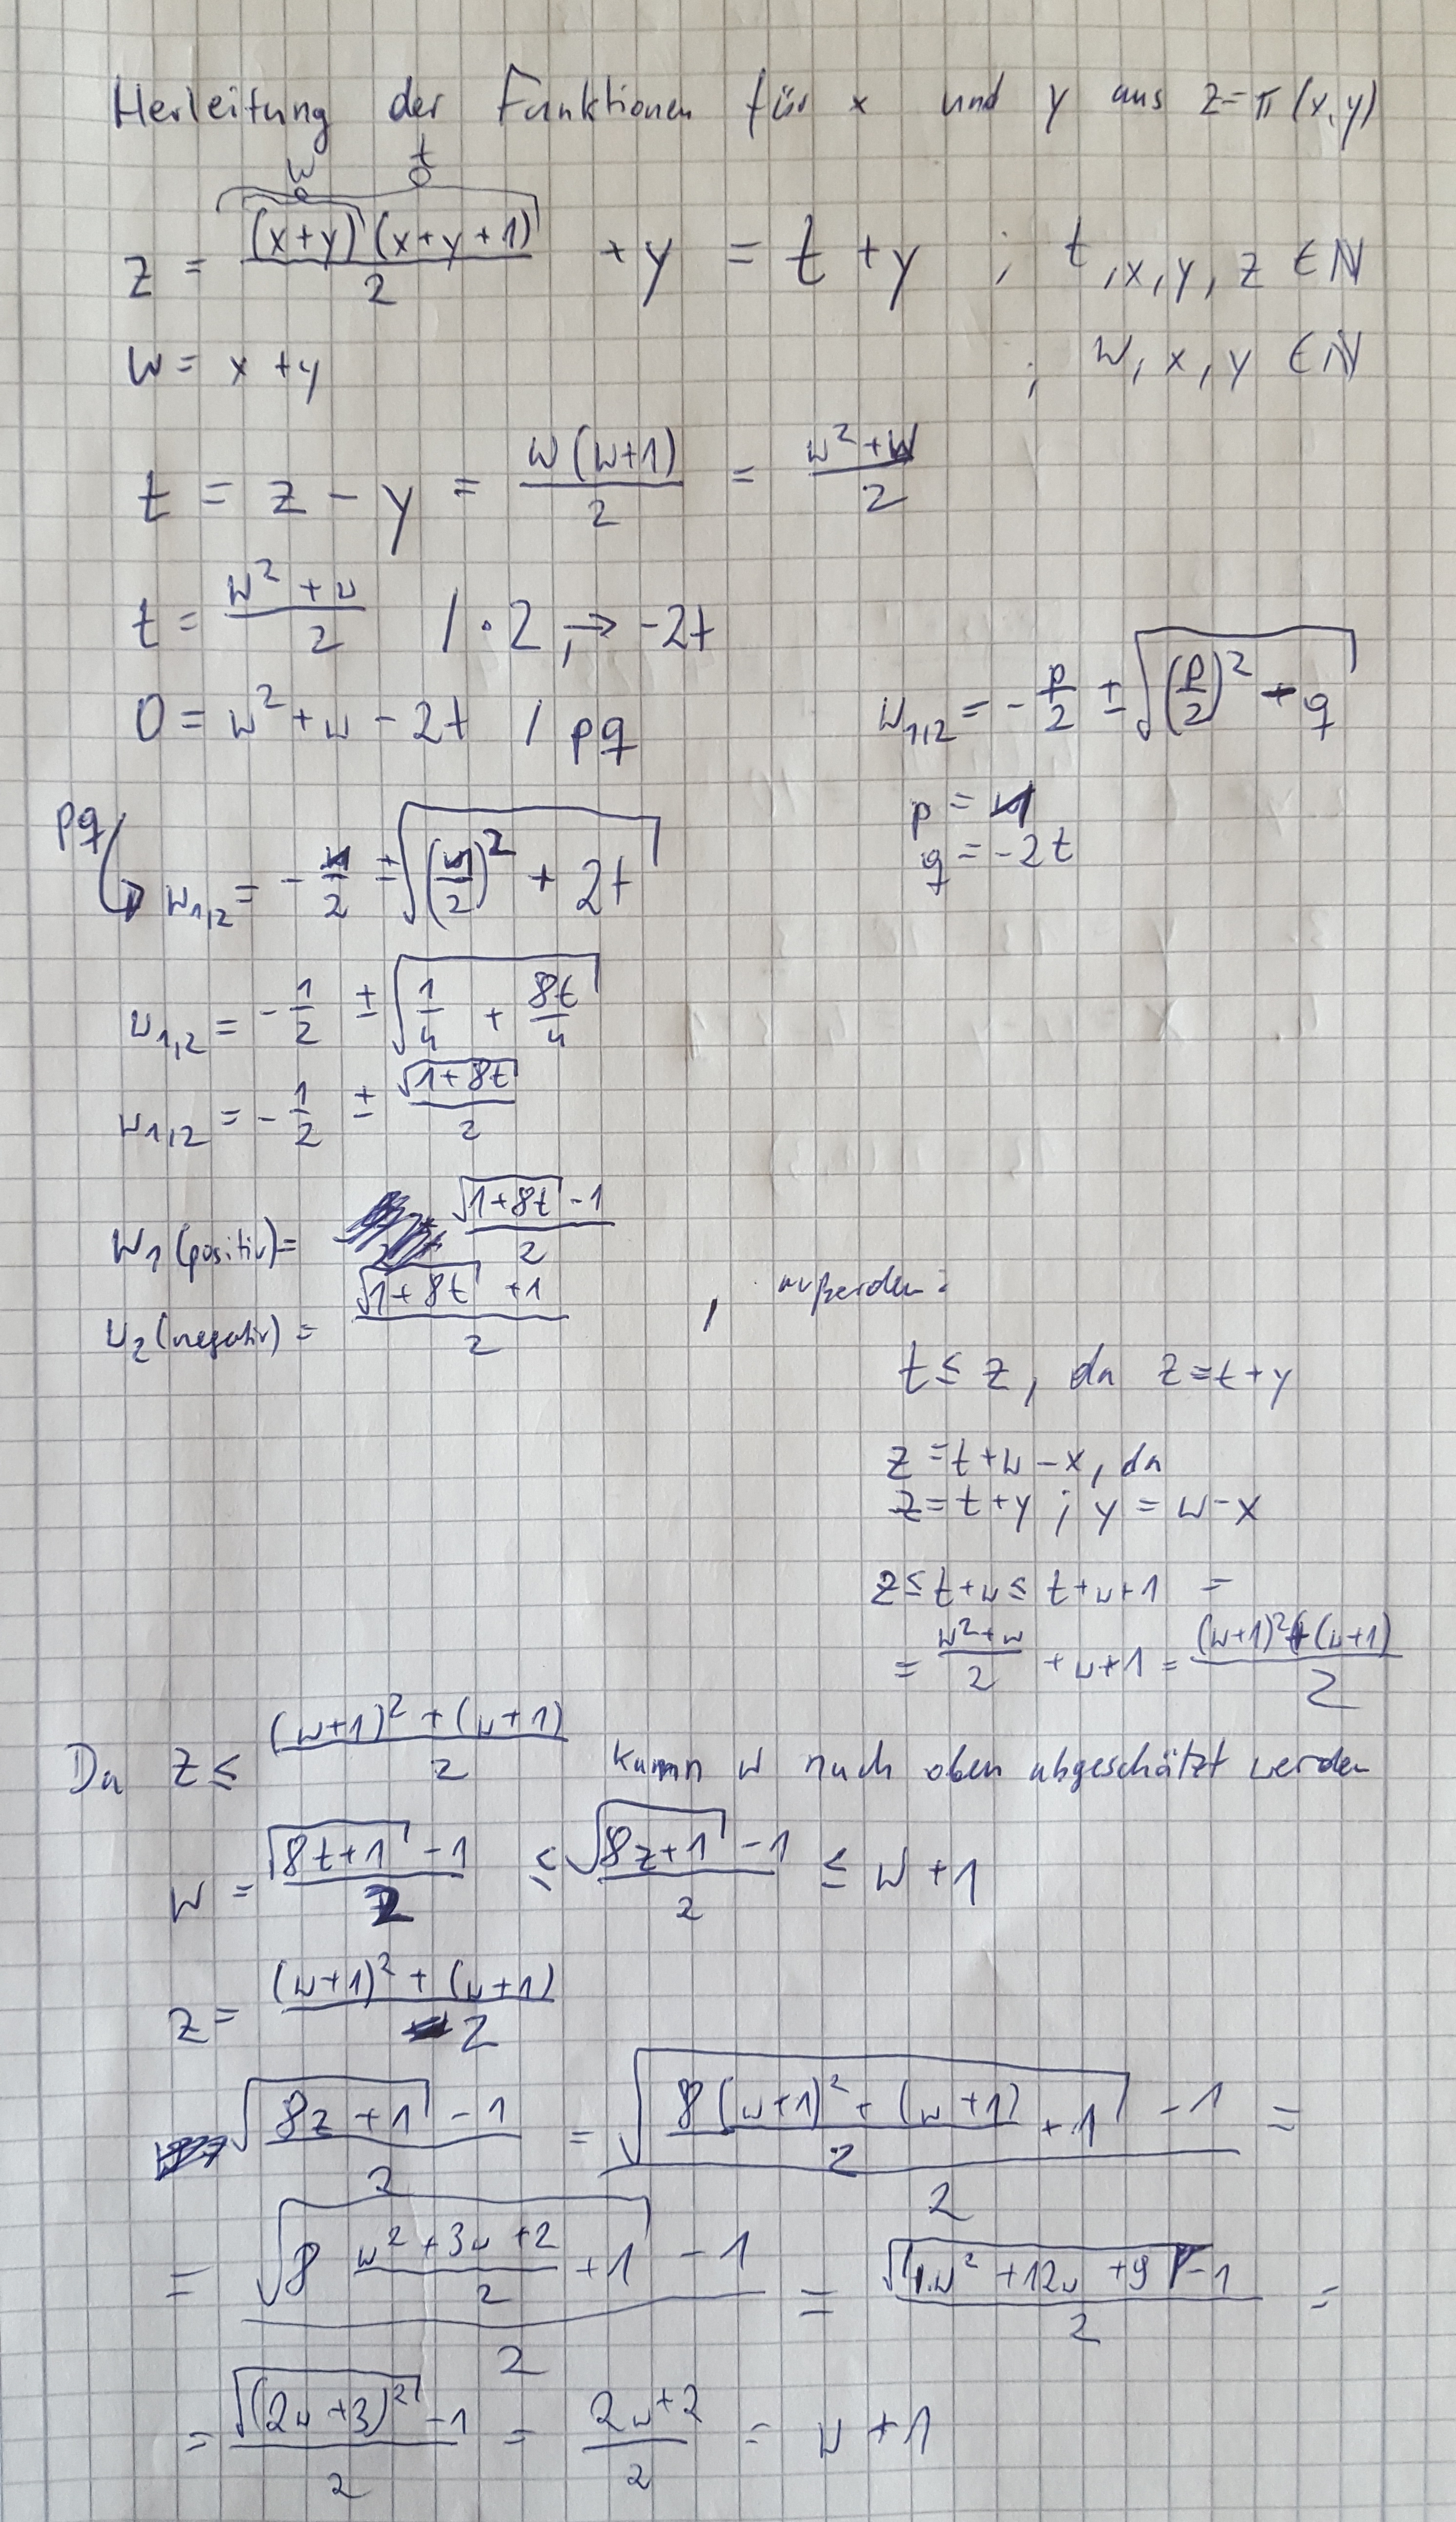 Herleitung der Funktionen für x und y aus z=π(x,y)
w t
z = (x+y)(x+y+1)/2 + y = t + y ; t,x,y,z ∈ ℕ
w = x + y ; w, x, y ∈ ℕ
t = z − y = w(w+1)/2 = (w²+w)/2
t = (w²+w)/2 / ·2, → −2t
0 = w² + w − 2t / pq
w₁,₂ = −p/2 ± √((p/2)² − q)
p = 1
q = −2t
pq
w₁,₂ = −1/2 ± √((1/2)² + 2t)
w₁,₂ = −1/2 ± √(1/4 + 8t/4)
w₁,₂ = −1/2 ± √(1+8t)/2
w₁ (positiv) = (√(1+8t) −1)/2
w₂ (negativ) = (√(1+8t) +1)/2 , außerdem:
t ≤ z, da z=t+y
z = t+w−x, da
z = t+y ; y = w−x
z ≤ t+w ≤ t+w+1 =
= (w²+w)/2 + w+1 = ((w+1)²+(w+1))/2
Da z ≤ ((w+1)² + (w+1))/2 kann w nach oben abgeschätzt werden
w = (√(8t+1) −1)/2 ≤ (√(8z+1) −1)/2 ≤ w+1
z = ((w+1)² + (w+1))/2
(√(8z+1) −1)/2 = (√(8 ((w+1)² + (w+1))/2 + 1) −1)/2 =
= (√(8 (w²+3w+2)/2 +1) −1)/2 = (√(4w²+12w+9) −1)/2 =
= (√((2w+3)²) −1)/2 = (2w+2)/2 = w+1